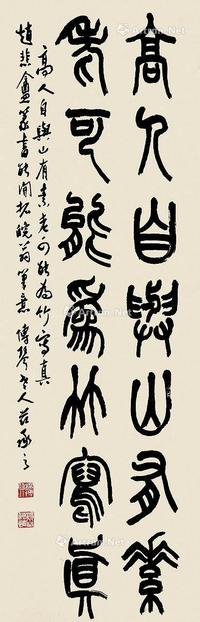 高人自與山有素
老可能為竹寫真
高人自與山有素老可能為竹寫真
趙悲盦篆書能開拓皖翁筆意